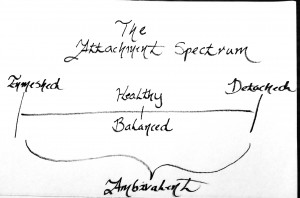 The
Attachment Spectrum
Enmeshed
Detached
Healthy
Balanced
Ambivalent